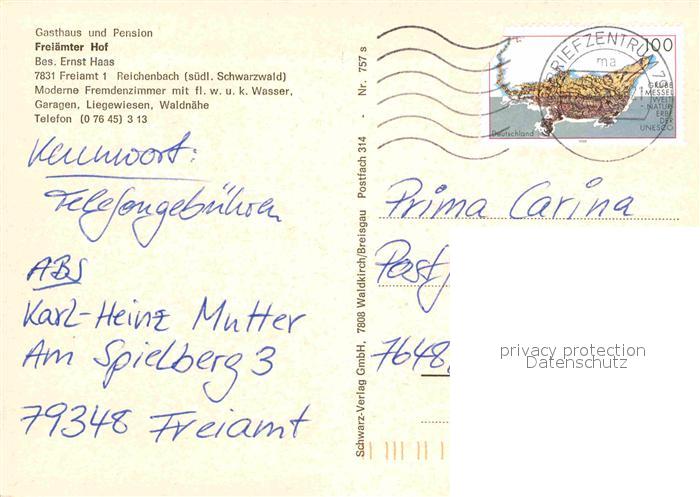 Gasthaus und Pension
Freiämter Hof
Bes. Ernst Haas
7831 Freiamt 1 Reichenbach (südl. Schwarzwald)
Moderne Fremdenzimmer mit fl. w. u. k. Wasser,
Garagen, Liegewiesen, Waldnähe
Telefon (0 76 45) 3 13
Kennwort:
Telefongebühren
ABS
Karl-Heinz Mutter
Am Spielberg 3
79348 Freiamt
Schwarz-Verlag GmbH, 7808 Waldkirch/Breisgau Postfach 314 - Nr. 757 s
BRIEFZENTRUM
ma
100
GRUBE
MESSEL
WELT
NATUR
ERBE
DER
UNESCO
Deutschland
Prima Carina
Postf
7648
privacy protection
Datenschutz